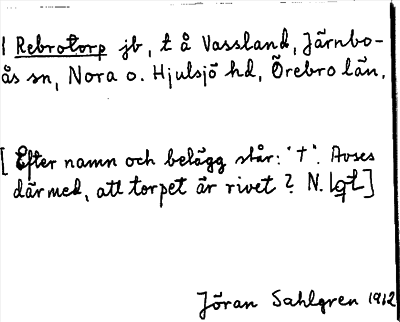 1 Rebrotorp jb, t å Vassland, Järnbo-
ås sn, Nora o. Hjulsjö hd, Örebro län.
[Efter namn och belägg står: "†". Avses
därmed, att torpet är rivet? N. Lgt]
Jöran Sahlgren 1912